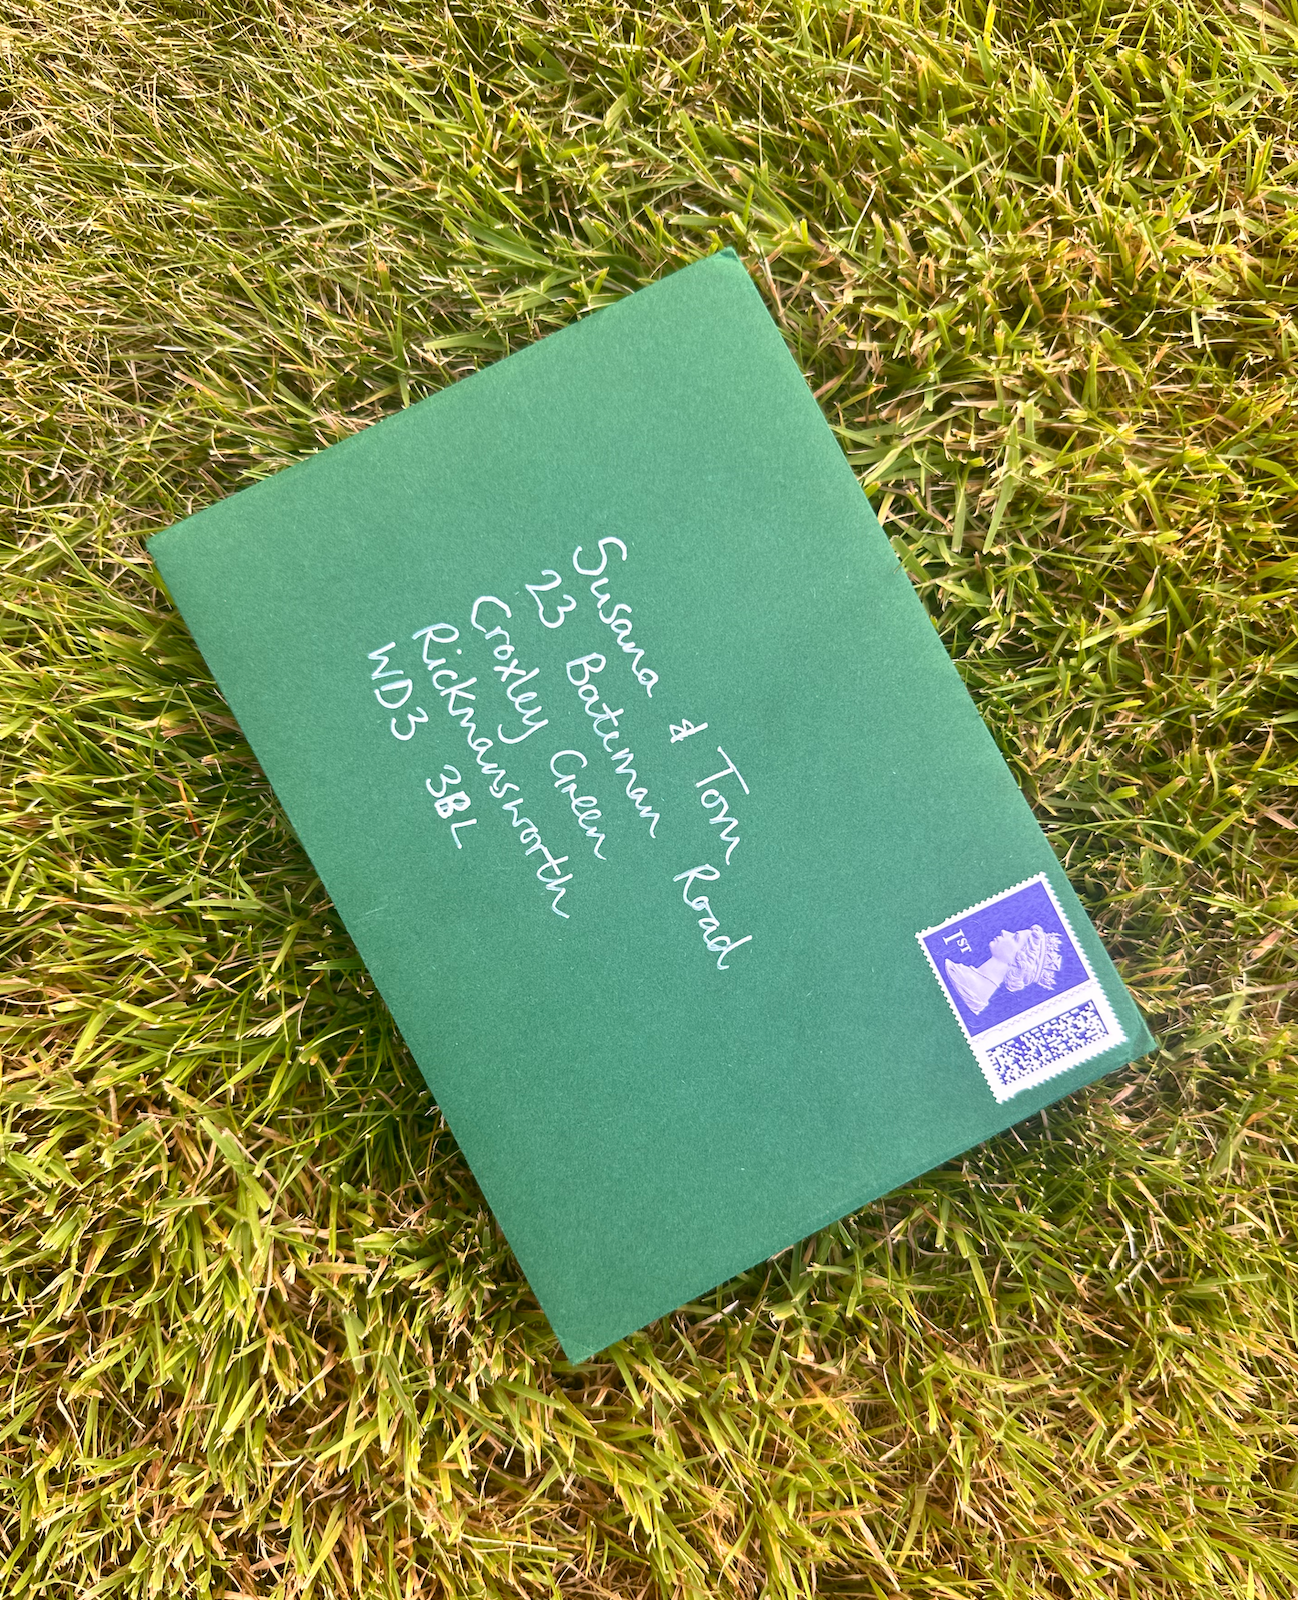 Susana & Tom
23 Bateman Road
Croxley Green
Rickmansworth
WD3 3BL
1ST